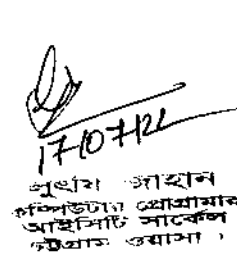 17/07/22
জাহান
কম্পিউটার প্রোগ্রামার
আইসিটি সার্কেল
চট্টগ্রাম ওয়াসা ।